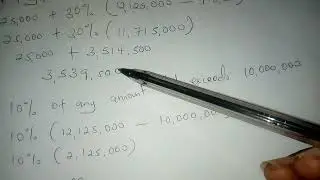 25,000 + 30% (12,125,000 –
25,000 + 30% (11,715,000)
25,000 + 3,514,500
3,539,50
10% of any amount exceeds 10,000,000
10% (12,125,000 – 10,000,00
10% (2,125,000)